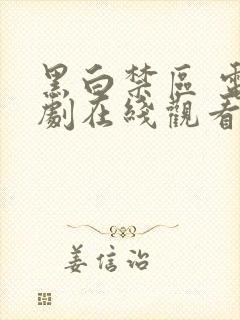 黑白禁區 電
劇在綫觀看
姜信治